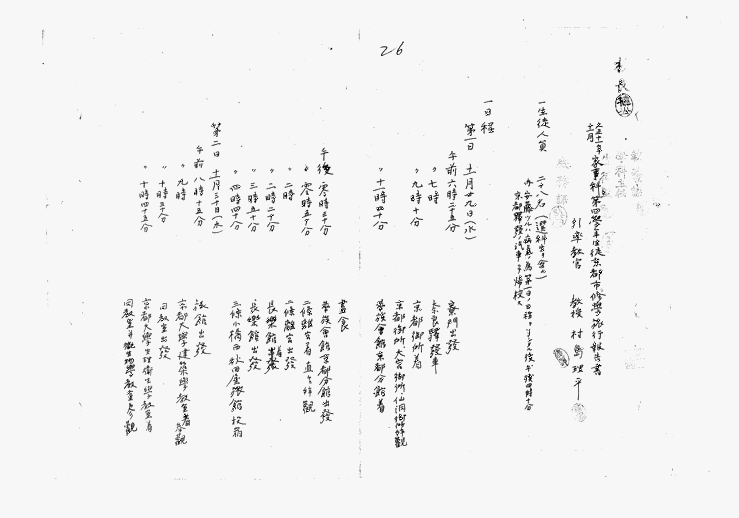 26
本
長
大正十一年十一月 家事科第四學年生徒京都市修學旅行報告書
引率教官 教授 村島理平
一生徒人員 二十八名(選科生ヲ含ム)
一日程
第一日 十一月廿九日(水)
午前六時二十五分 寮門出發
〃 七時 奈良驛發車
〃 九時十分 京都御所着
京都御所、大宮御所、仙洞御所拜觀
〃 十一時四十分 華族會館京都分館着
晝食
午後 零時三十分 華族會館京都分館出發
〃 零時五十分 二條離宮着直ニ拜觀
〃 二時 二條離宮出發
〃 二時二十分 長樂館着
〃 三時五十分 長樂館出發
〃 四時四十分 三條小橋西
第二日 十一月三十日(木)
午前 八時十五分 旅館出發
〃 九時 京都大學建築學教室着參觀
〃 十時三十分 同教室出發
〃 十時四十五分 京都大學生理衛生學教室着
同教室并微生物學教室參觀